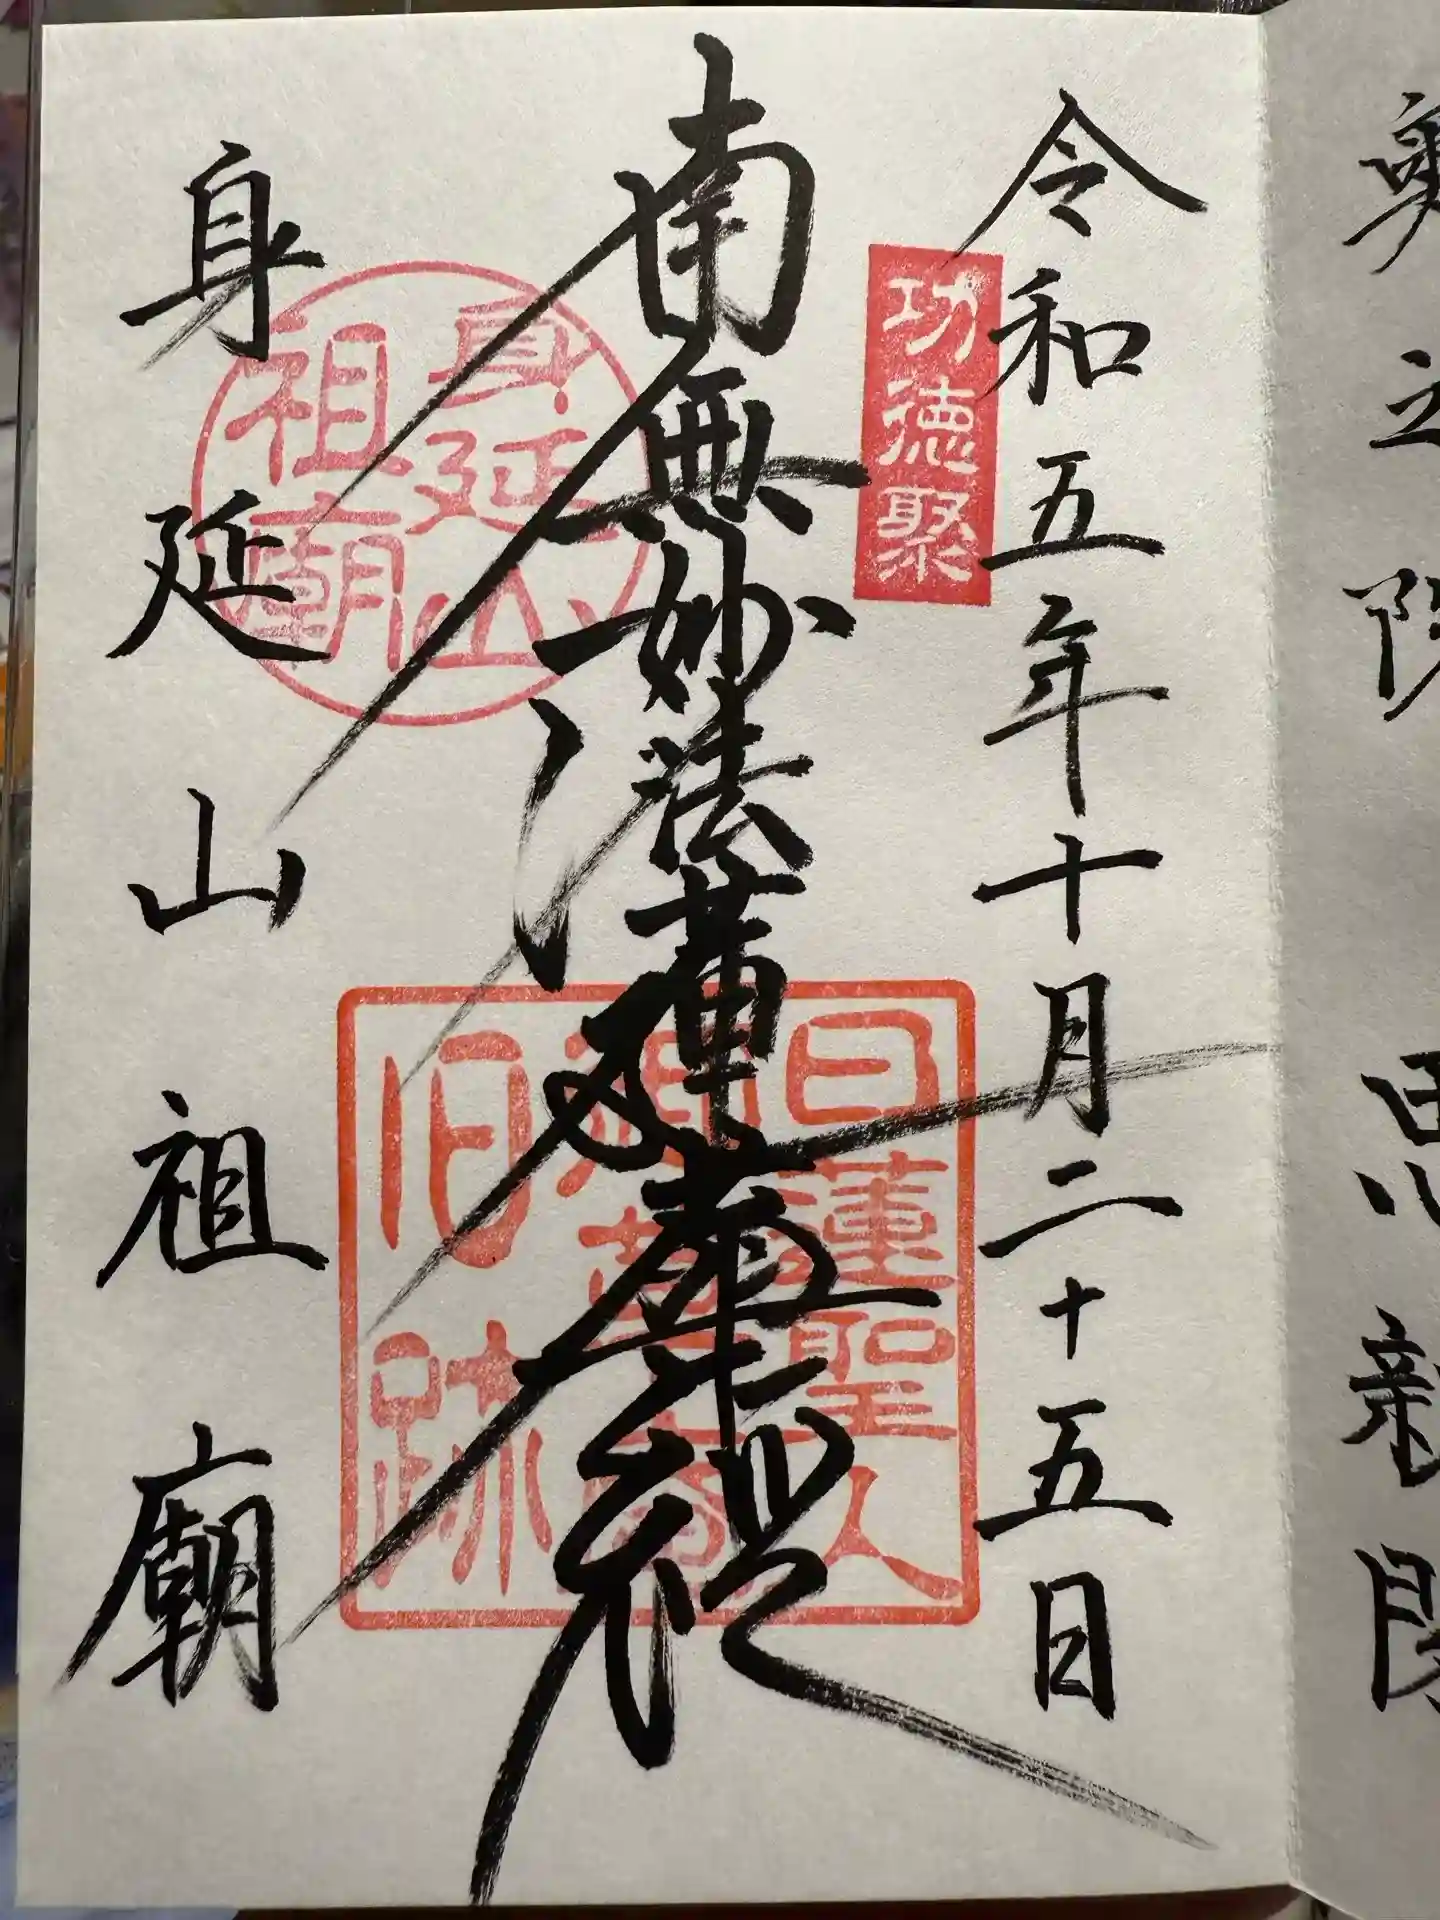 令和五年十月二十五日
功徳聚
南無妙法蓮華経
身延山
祖廟
日蓮聖人
御草庵
旧跡
身延山祖廟
奥之院
思親閣